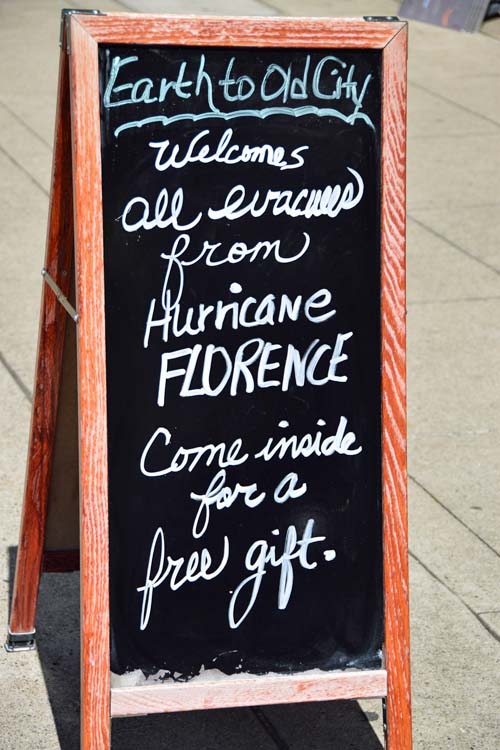 Earth to Old City
Welcomes
all evacuees
from
Hurricane
FLORENCE
Come inside
for a
free gift.